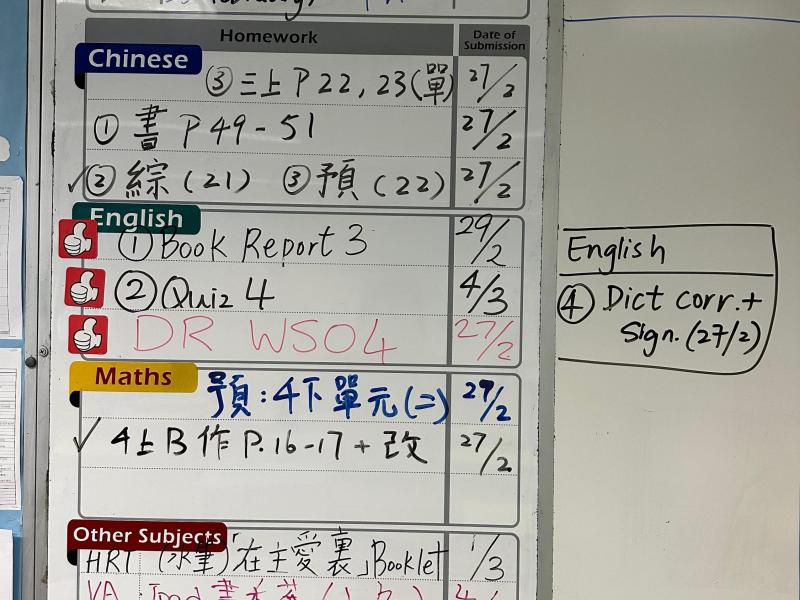 Homework
Date of Submission
Chinese
③ 三上 P 22, 23 (單) 27/2
① 書 P 49 - 51 27/2
✓② 綜 (21) ③ 預 (22) 27/2
English
① Book Report 3 29/2
② Quiz 4 4/3
DR WS04 27/2
Maths
預: 4下單元(二) 27/2
✓ 4上B 作 P. 16-17 + 改 27/2
Other Subjects
HRT (水筆)「在主愛裏」Booklet 1/3
VA
English
④ Dict corr. +
Sign. (27/2)